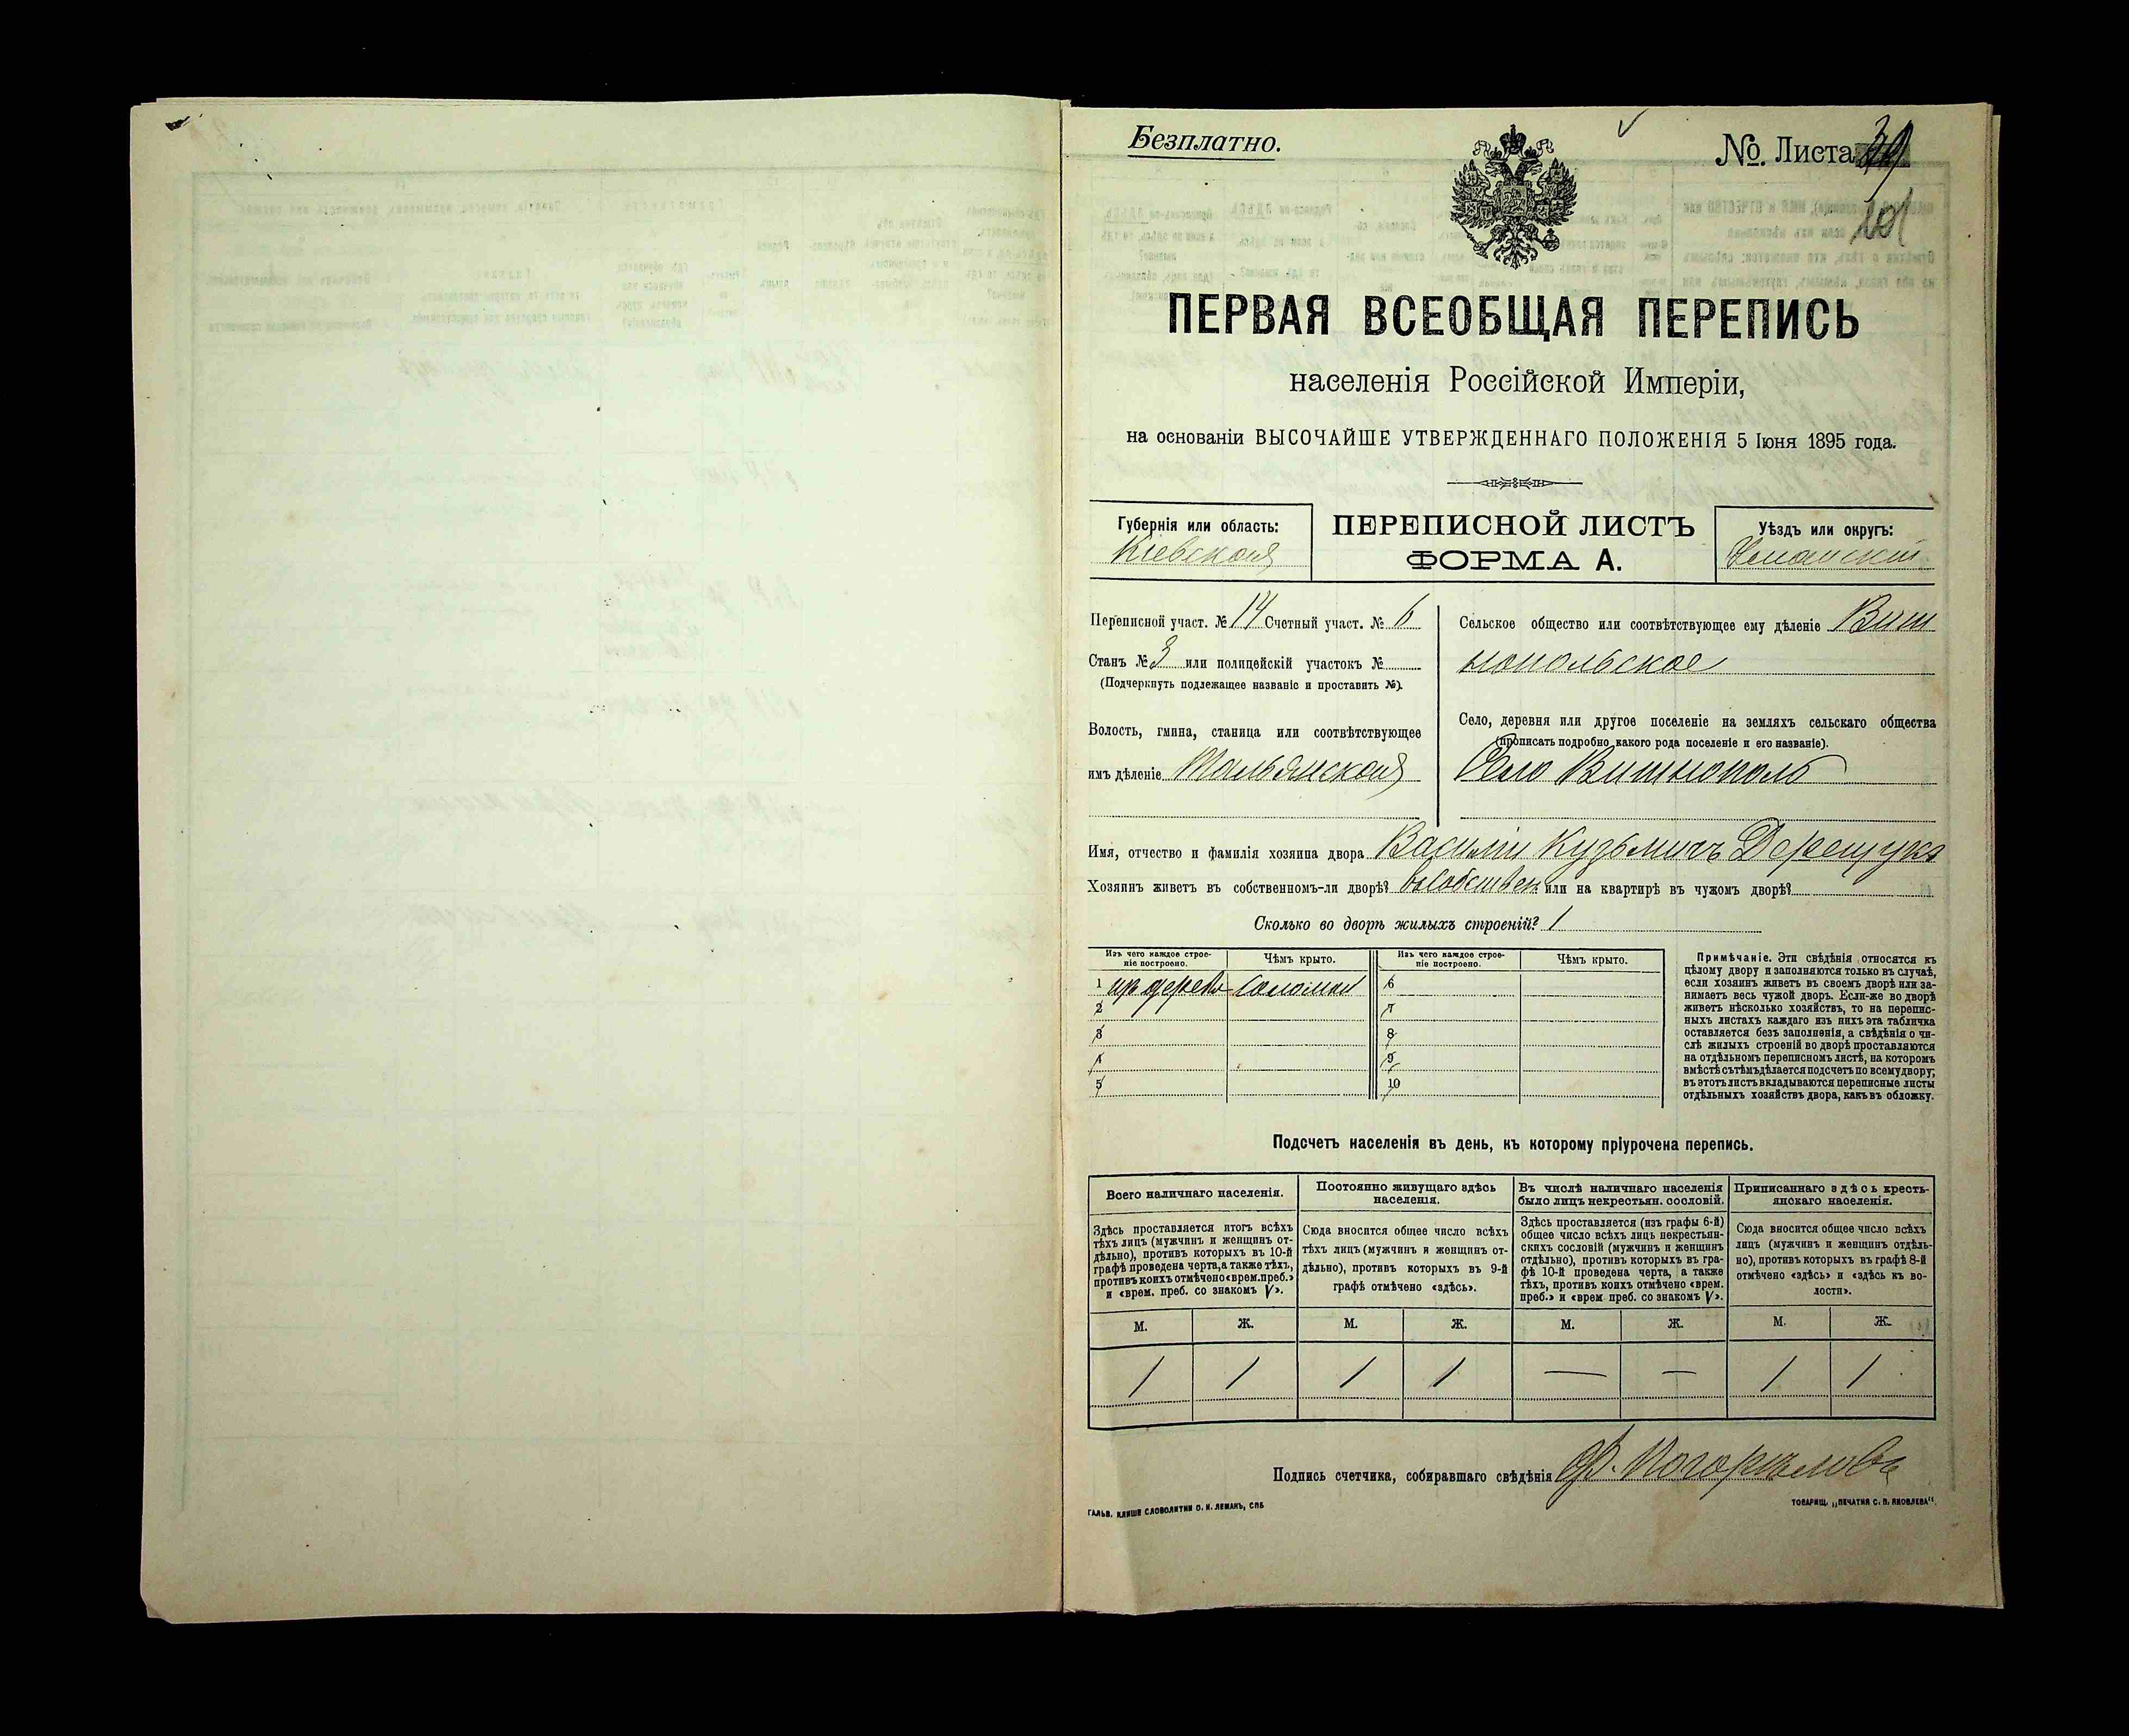 Безплатно.
№. Листа 39
101
ПЕРВАЯ ВСЕОБЩАЯ ПЕРЕПИСЬ
населенія Россійской Имперіи,
на основаніи ВЫСОЧАЙШЕ УТВЕРЖДЕННАГО ПОЛОЖЕНІЯ 5 Іюня 1895 года.
Губернія или область:
Кіевская
ПЕРЕПИСНОЙ ЛИСТЪ
ФОРМА А.
Уѣздъ или округъ:
Уманскій
Переписной участ. № 14 Счетный участ. № 6
Станъ № 3 или полицейскій участокъ №
(Подчеркнуть подлежащее названіе и проставить №).
Волость, гмина, станица или соотвѣтствующее
имъ дѣленіе Тальянская
Сельское общество или соотвѣтствующее ему дѣленіе Виш
нопольское
Село, деревня или другое поселеніе на земляхъ сельскаго общества
(прописать подробно какого рода поселеніе и его названіе).
Село Вишнополь
Имя, отчество и фамилія хозяина двора Василій Кузьмичъ Дерещукъ
Хозяинъ живетъ въ собственномъ-ли дворѣ? въ собствен или на квартирѣ въ чужомъ дворѣ?
Сколько во дворѣ жилыхъ строеній? 1
Изъ чего каждое строе-
ніе построено.
Чѣмъ крыто.
Изъ чего каждое строе-
ніе построено.
Чѣмъ крыто.
1 изъ дерева Соломой 6
2 7
3 8
4 9
5 10
Примѣчаніе. Эти свѣдѣнія относятся къ
цѣлому двору и заполняются только въ случаѣ,
если хозяинъ живетъ въ своемъ дворѣ или за-
нимаетъ весь чужой дворъ. Если-же во дворѣ
живетъ нѣсколько хозяйствъ, то на перепис-
ныхъ листахъ каждаго изъ нихъ эта табличка
оставляется безъ заполненія, а свѣдѣнія о чи-
слѣ жилыхъ строеній во дворѣ проставляются
на отдѣльномъ переписномъ листѣ, на которомъ
вмѣстѣ съ тѣмъ дѣлается подсчетъ по всему двору;
въ этотъ листъ вкладываются переписные листы
отдѣльныхъ хозяйствъ двора, какъ въ обложку.
Подсчетъ населенія въ день, къ которому пріурочена перепись.
Всего наличнаго населенія.
Здѣсь проставляется итогъ всѣхъ
тѣхъ лицъ (мужчинъ и женщинъ от-
дѣльно), противъ которыхъ въ 10-й
графѣ проведена черта, а также тѣхъ,
противъ коихъ отмѣчено «врем. преб.»
и «врем. преб. со знакомъ V».
Постоянно живущаго здѣсь
населенія.
Сюда вносится общее число всѣхъ
тѣхъ лицъ (мужчинъ и женщинъ от-
дѣльно), противъ которыхъ въ 9-й
графѣ отмѣчено «здѣсь».
Въ числѣ наличнаго населенія
было лицъ некрестьян. сословій.
Здѣсь проставляется (изъ графы 6-й)
общее число всѣхъ лицъ некрестьян-
скихъ сословій (мужчинъ и женщинъ
отдѣльно), противъ которыхъ въ гра-
фѣ 10-й проведена черта, а также
тѣхъ, противъ коихъ отмѣчено «врем.
преб.» и «врем преб. со знакомъ V».
Приписаннаго здѣсь кресть-
янскаго населенія.
Сюда вносится общее число всѣхъ
лицъ (мужчинъ и женщинъ отдѣль-
но), противъ которыхъ въ графѣ 8-й
отмѣчено «здѣсь» и «здѣсь къ во-
лости».
М. Ж. М. Ж. М. Ж. М. Ж.
1 1 1 1 — — 1 1
Подпись счетчика, собиравшаго свѣдѣнія Ф. Погорѣловъ
ГАЛЬВ. КЛИШЕ СЛОВОЛИТНИ О. И. ЛЕМАНЪ, СПБ
ТОВАРИЩ. „ПЕЧАТНЯ С. П. ЯКОВЛЕВА“.